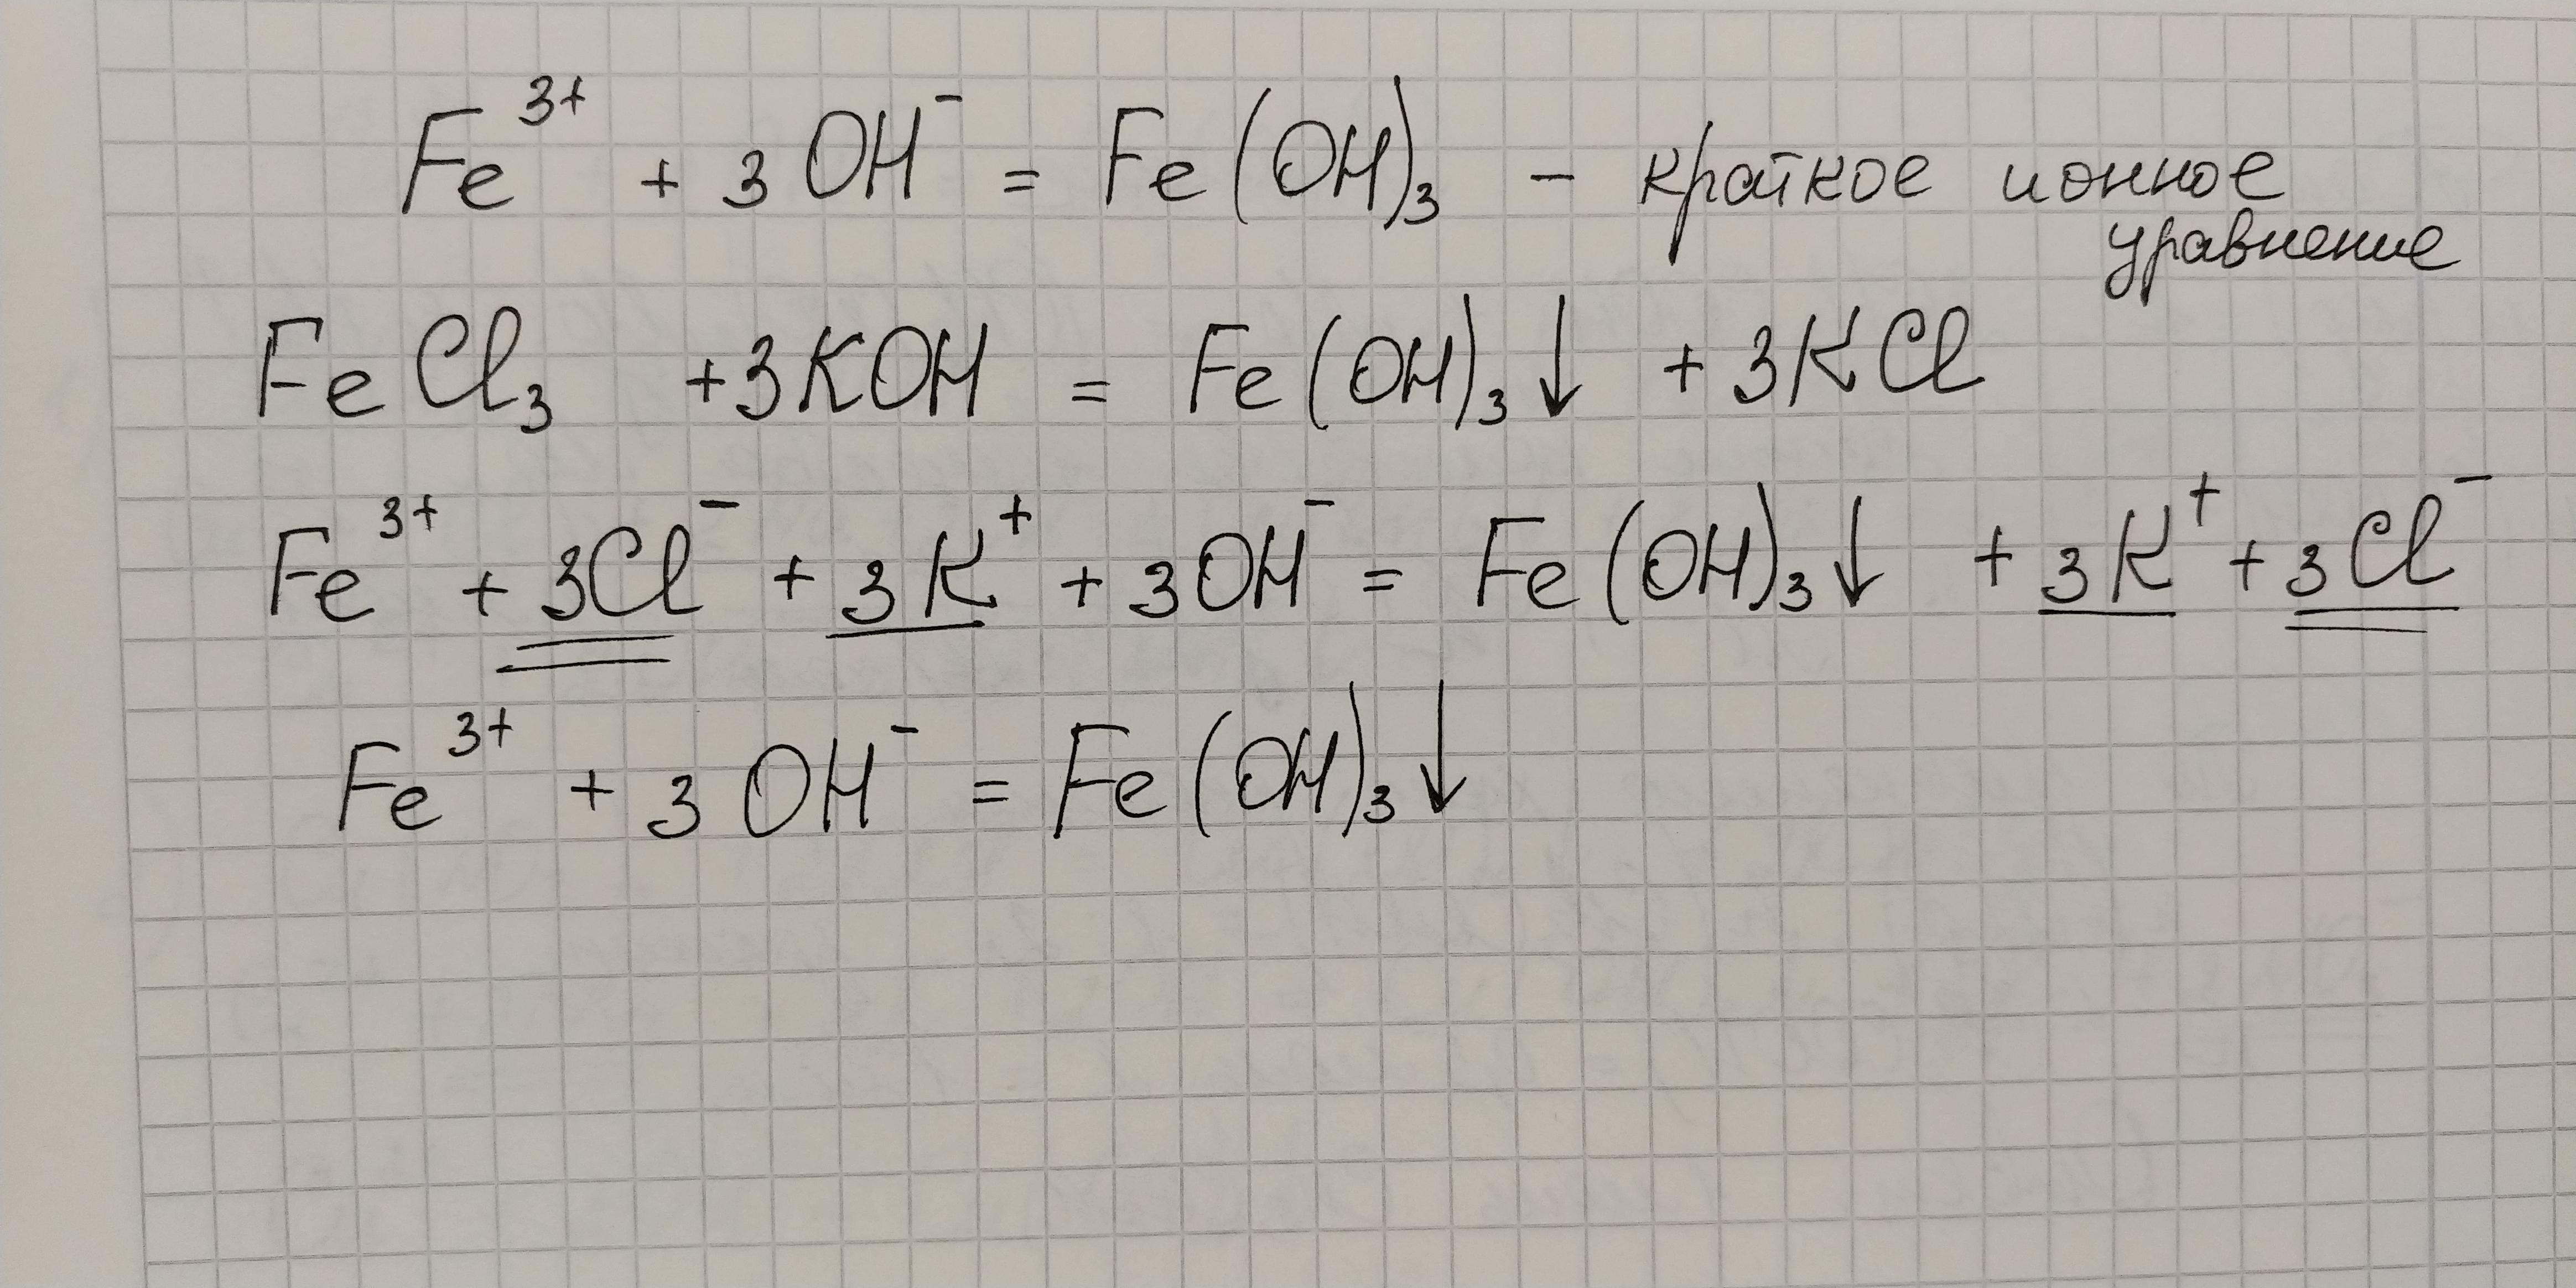 Fe³⁺ + 3OH⁻ = Fe(OH)₃ – краткое ионное
уравнение
FeCl₃ + 3KOH = Fe(OH)₃↓ + 3KCl
Fe³⁺ + 3Cl⁻ + 3K⁺ + 3OH⁻ = Fe(OH)₃↓ + 3K⁺ + 3Cl⁻
Fe³⁺ + 3OH⁻ = Fe(OH)₃↓